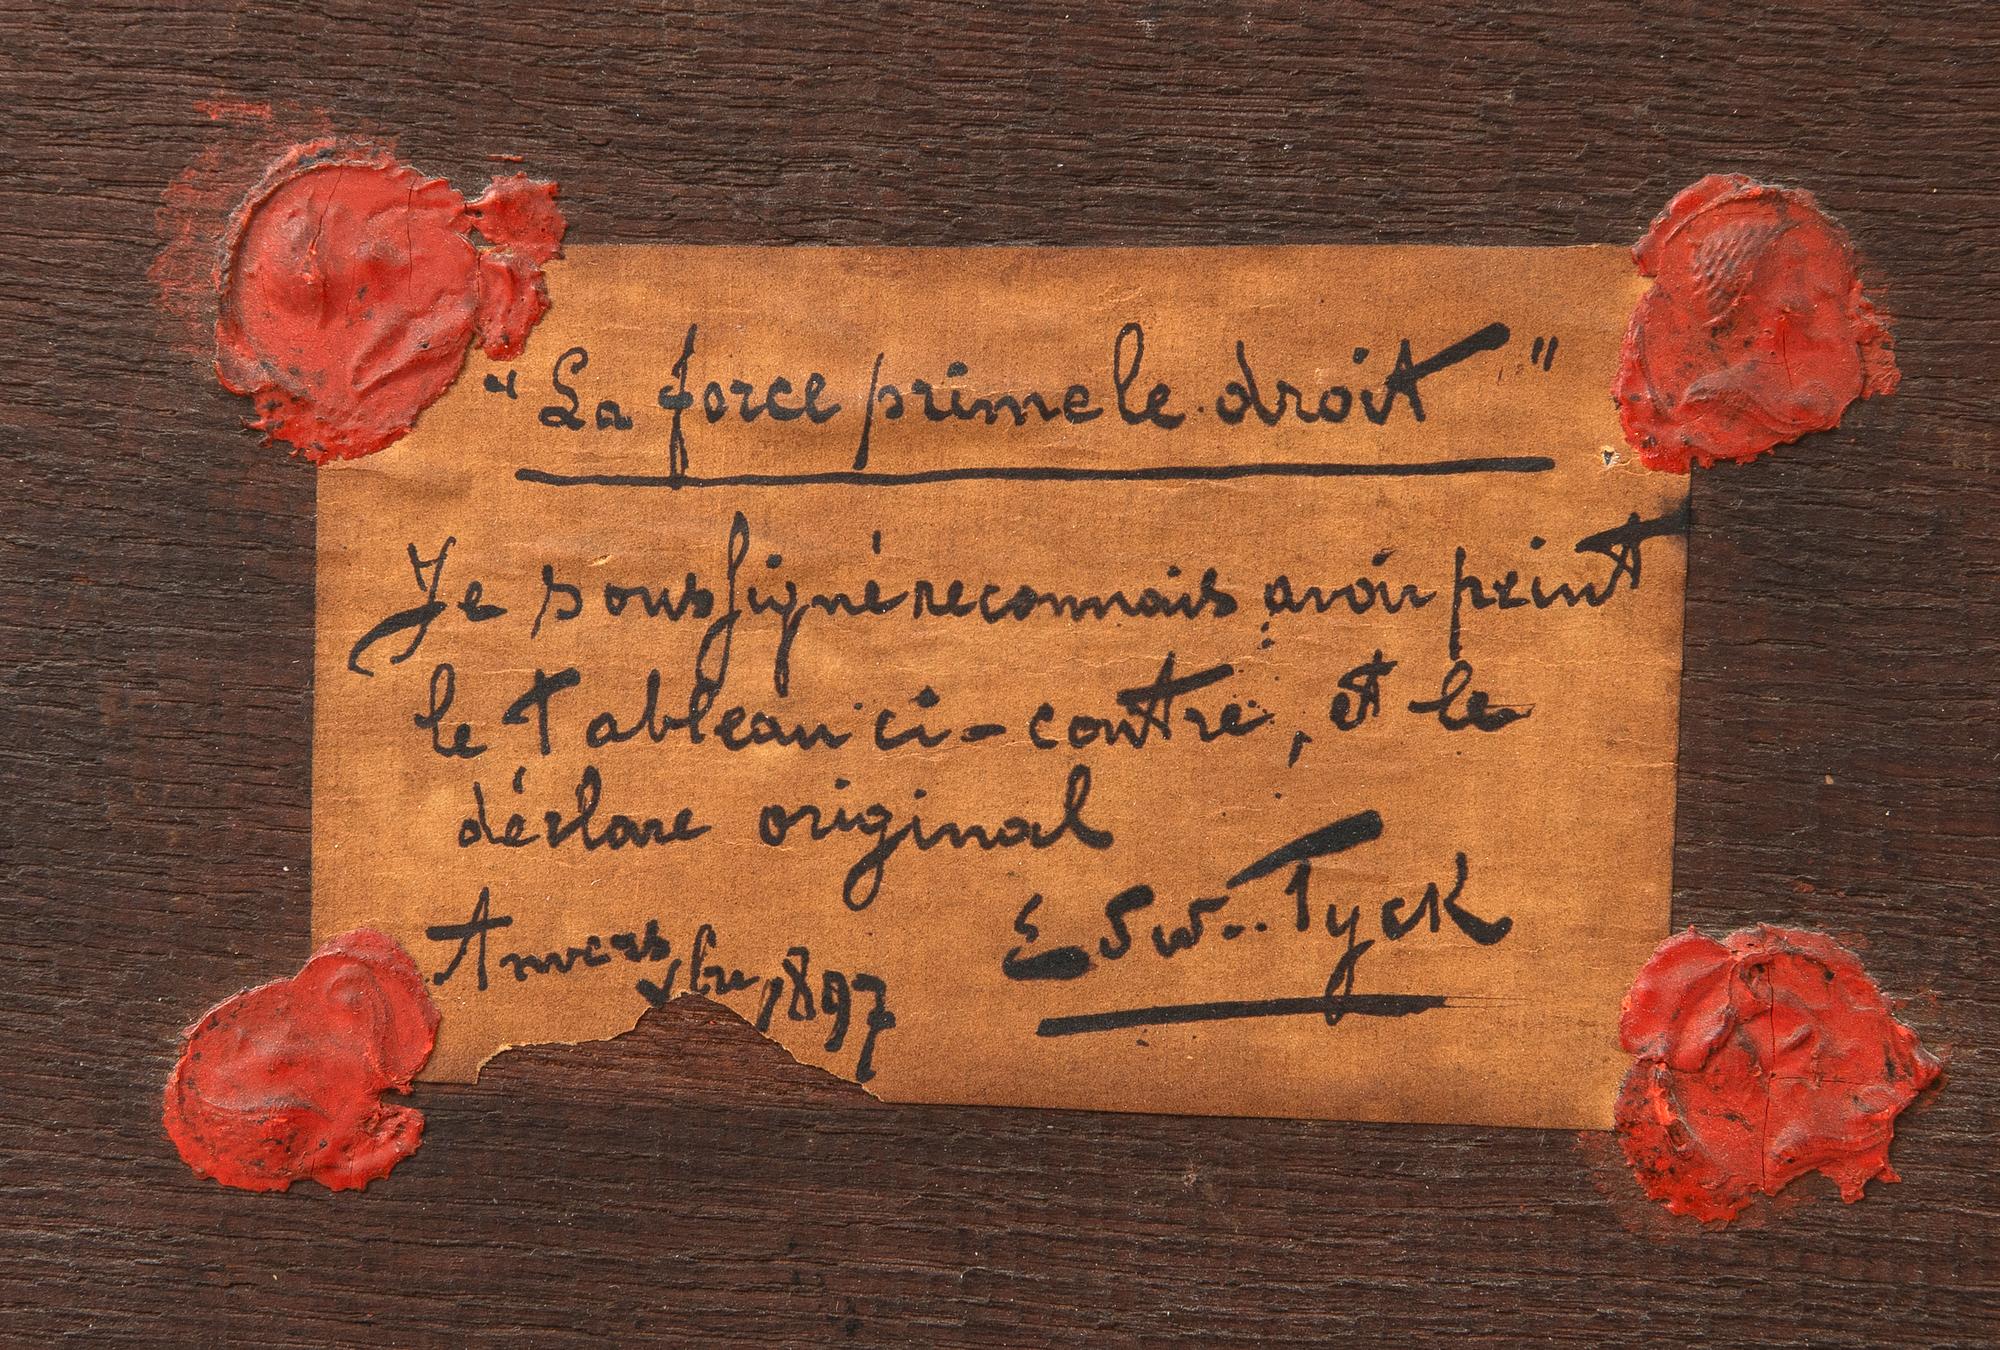 "La force prime le droit"
Je soussigné reconnais avoir peint
le Tableau ci-contre, et le
déclare original
Anvers 1897
Edw. Tyck